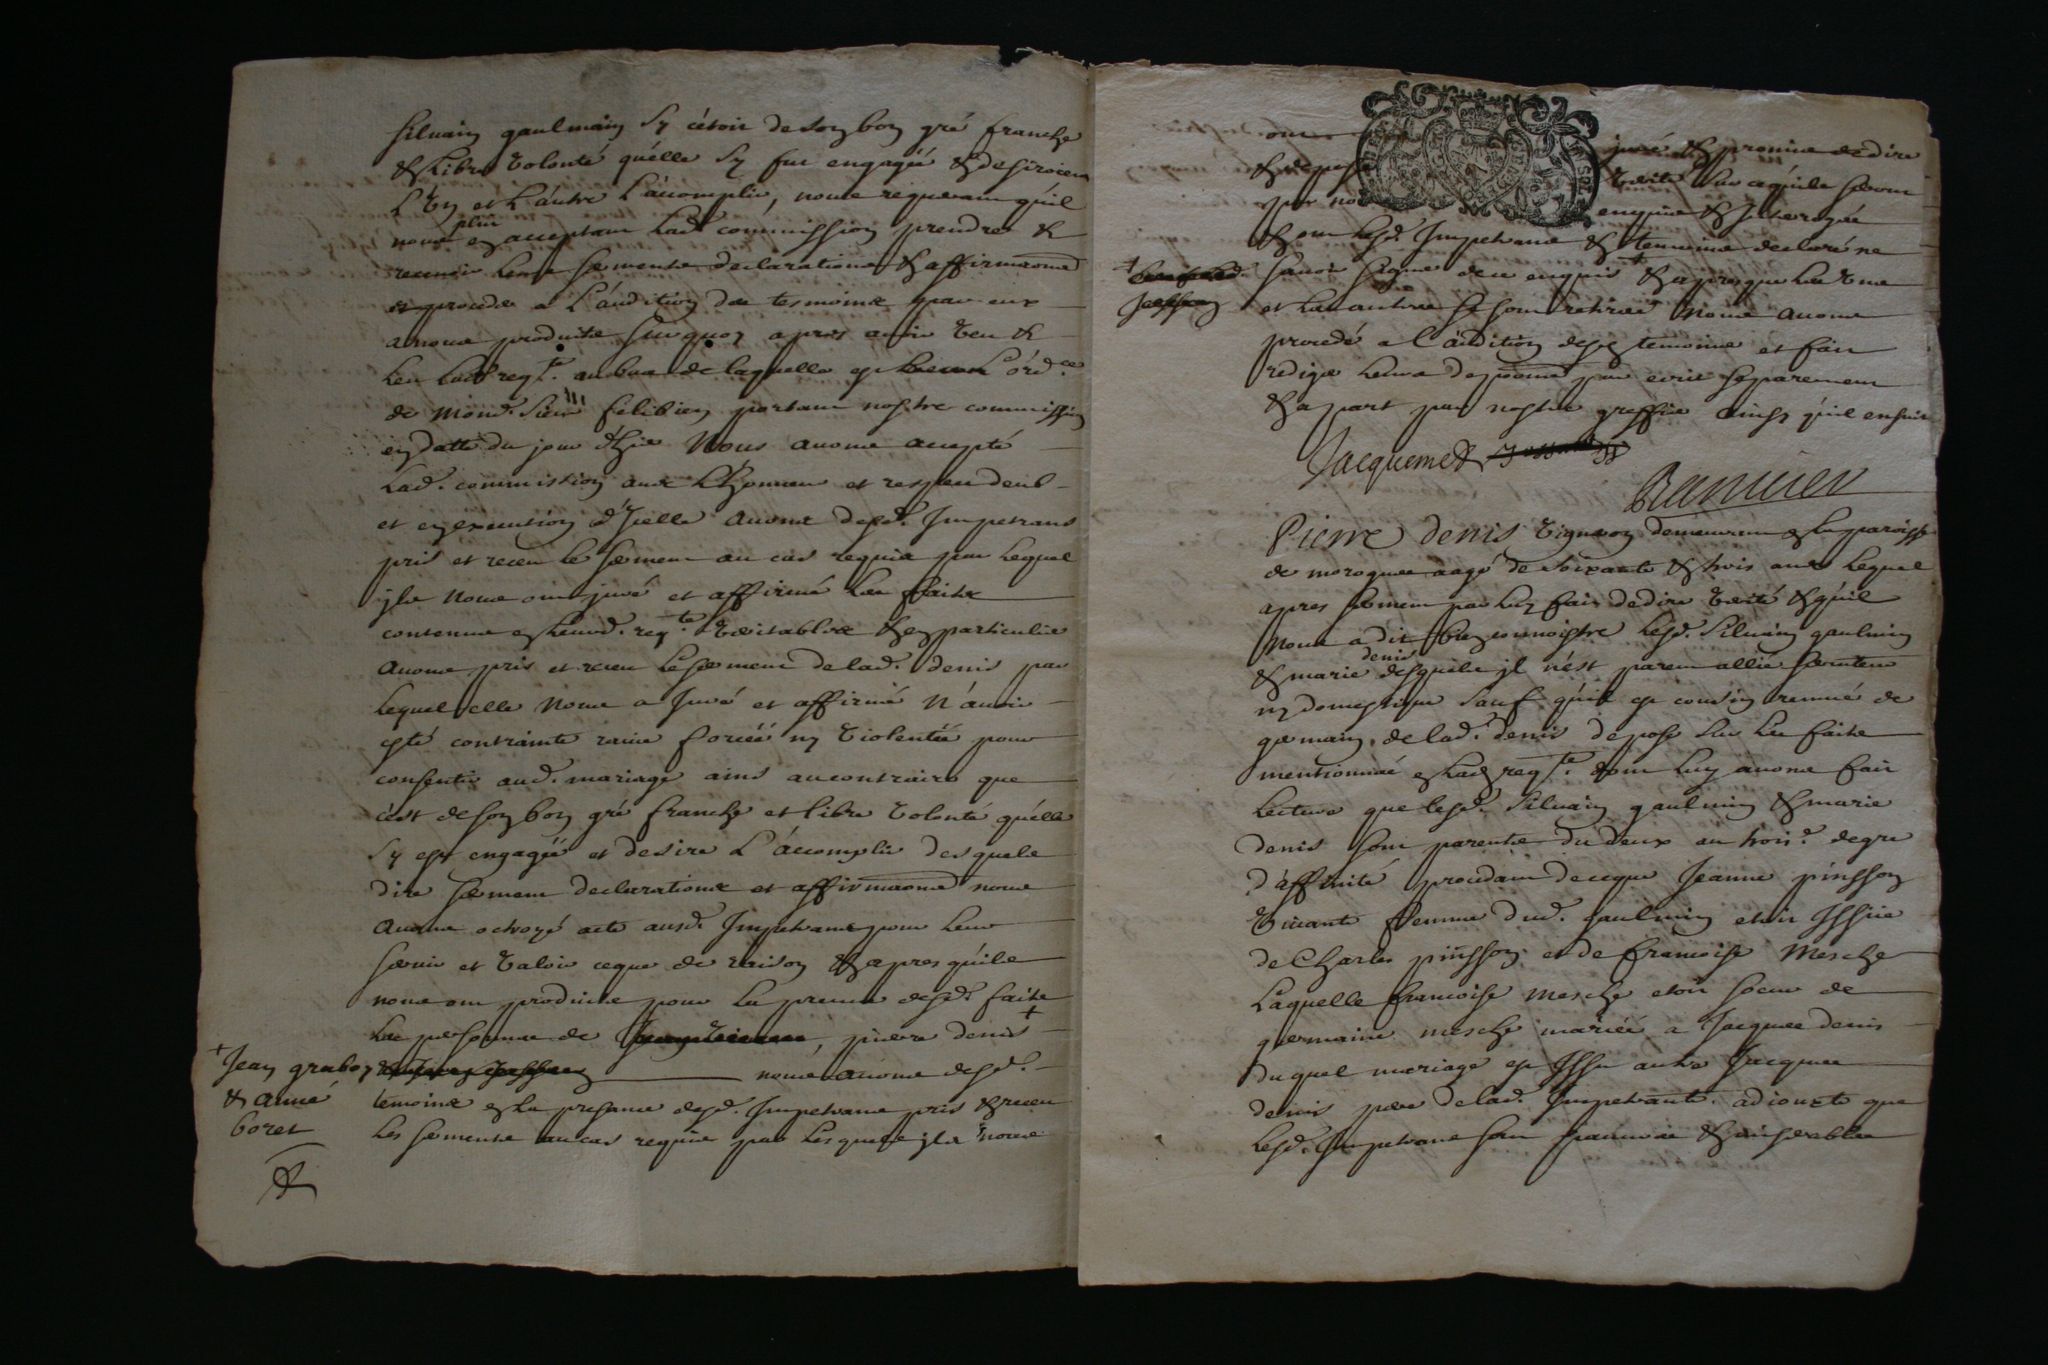 silvain gaulmain sy c'étoit de son bon gré franche
& libre volonté qu'elle sy fut engagée & desiroient
l'un et l'autre l'accomplir, nous requerant qu'il
nous plut
en acceptant lad. commission prendre &
recevoir leurs serments declarations & affirmaons
et proceder a l'audition des tesmoins par eux
a nous produits surquoy apres avoir veu &
leu lad. reqte. au bas de laquelle est l'ord.ce
de mond. sieur felibien portant nostre commission
en datte du jour d'hier Nous avons accepté
lad. commission avec l'honneur et respect deub
et en execution d'icelle avons desd. Impetrans
pris et receu le serment au cas requis par lequel
ils nous ont juré et affirmé les faits
contenus en leurd. reqte. veritables & en particulier
avons pris et receu le serment de lad. denis par
lequel elle nous a juré et affirmé n'avoir
esté contrainte ravie forcée ny violentée pour
consentir aud. mariage ains au contraire que
c'est de son bon gré franche et libre volonté qu'elle
sy est engagée et desire l'accomplir desquels
dire serment declarations et affirmaons nous
avons octroyé acte ausd. Impetrans pour leur
servir et valoir ce que de raison & apres qu'ils
nous ont produits pour la preuve desd. faits
les personnes de pierre denis +
+ Jean graboy
& anne
boret
nous avons desd.
temoins en la presence desd. Impetrans pris & receu
les serments au cas requis par lesquels ils nous
ont juré & promis de dire
& deposer verité sur ce qu'ils seront
par nous enquis & interogés
& ont lesd. Impetrans & temoins declaré ne
savoir signer de ce enquis + & apres que les uns
et les autres se sont retirés Nous avons
procedé a l'audition desd. temoins et fait
rediger leurs depoons par ecrit separement
& a part par nostre greffier ainsy qu'il ensuit
Jacquemet
Pierre denis vigneron demeurant en la paroisse
de morogues aagé de soixante & trois ans lequel
apres serment par luy fait de dire verité & qu'il
Nous a dit bien connoistre lesd. silvain gaulmin
& marie denis desquels il n'est parent allié serviteur
ny domestique sauf qu'il est cousin remué de
germain de lad. denis depose sur les faits
mentionnés en lad. reqte. dont luy avons fait
lecture que lesd. silvain gaulmin & marie
denis sont parents du deux au trois.e degré
d'affinité procedant de ce que Jeanne pinsson
vivante femme dud. gaulmin etoit Issüe
de Charles pinsson et de francoise Mesche
laquelle francoise mesche etoit soeur de
germaine mesche mariée a Jacques denis
duquel mariage est Issu autre Jacques
denis pere de lad. Impetrante. adioute que
lesd. Impetrans sont pauvres & miserables